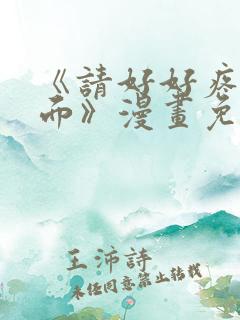 《請好好疼
而》漫畫免
王沛詩
未经同意禁止转载